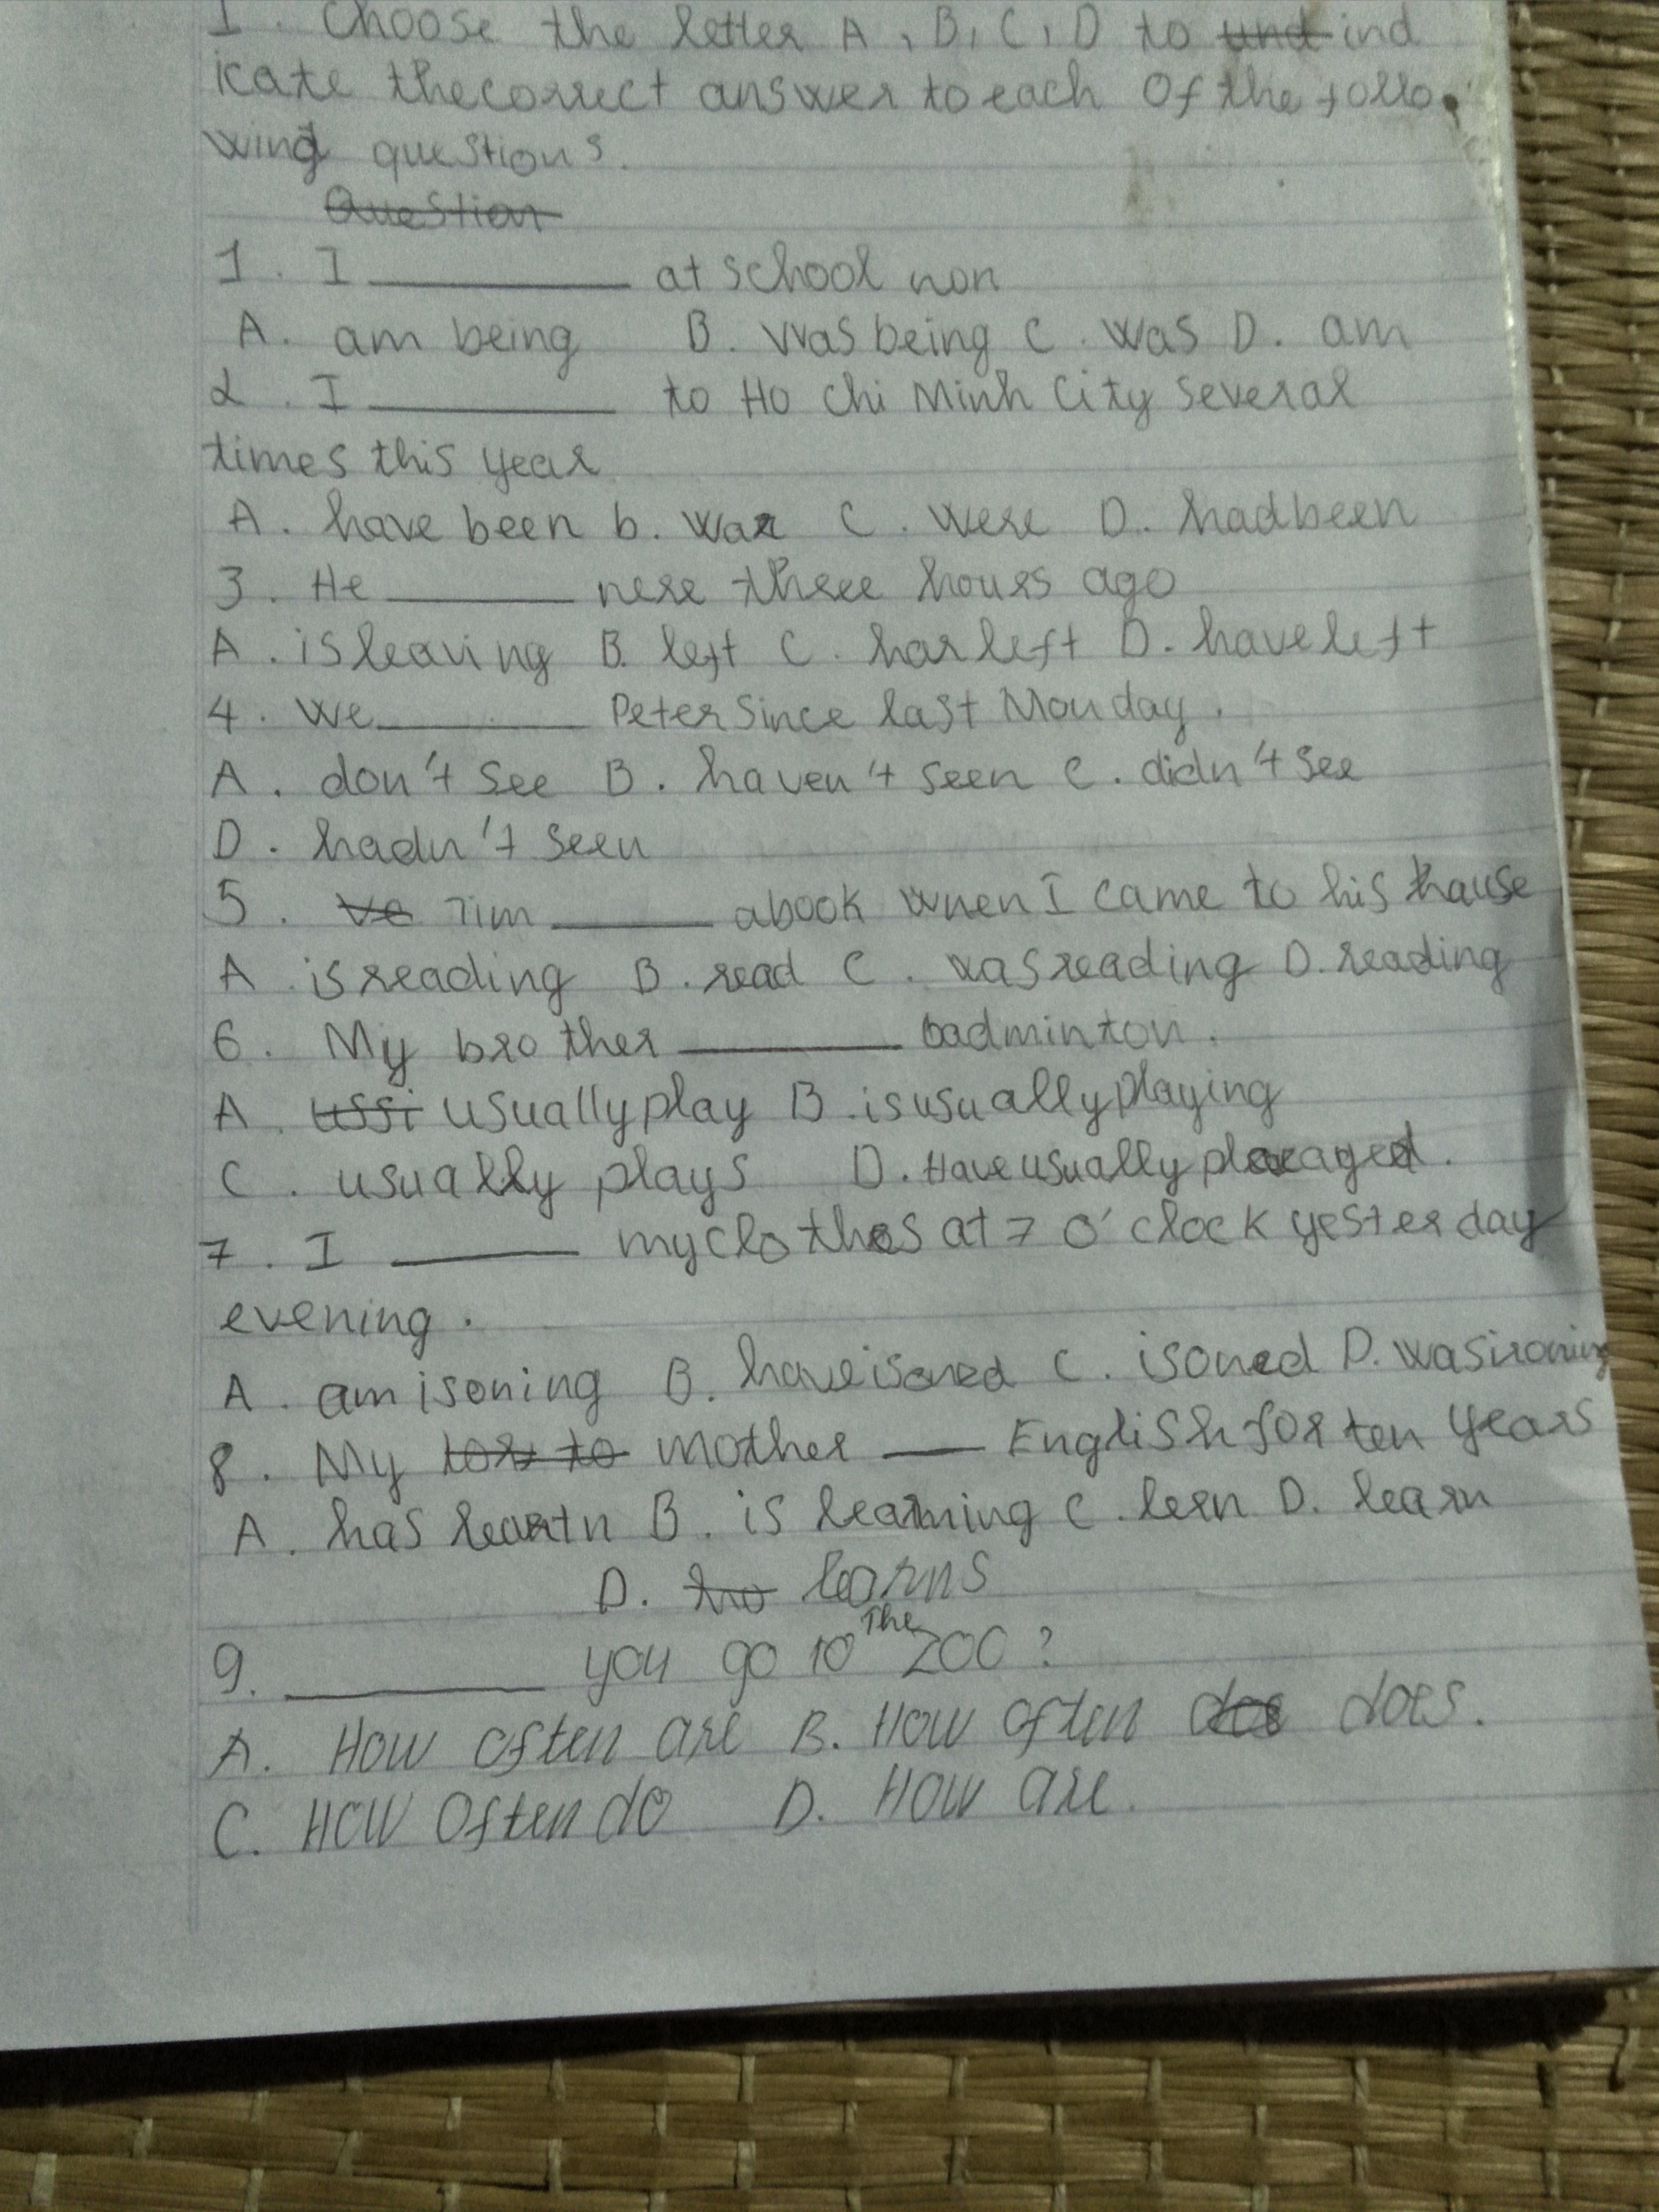 I. Choose the letter A, B, C, D to und ind
icate the correct answer to each of the follo
wing questions.
Question
1. I ________ at school non
A. am being B. Was being C. was D. am
2. I ________ to Ho Chi Minh City several
times this year
A. have been b. was C. were D. had been
3. He ________ nere three hours ago
A. is leaving B. left C. has left D. have left
4. We ________ Peter since last Monday.
A. don't see B. haven't seen C. didn't see
D. hadn't seen
5. Tim ________ a book when I came to his hause
A. is reading B. read C. was reading D. reading
6. My brother ________ badminton.
A. ussi usually play B. is usually playing
C. usually plays D. Have usually played.
7. I ________ my clothes at 7 o'clock yesterday
evening.
A. am ironing B. have ironed C. ironed D. was ironing
8. My mother ____ English for ten years
A. has B. is learning C. lern D. learn
D. learns
9. ________ you go to The zoo?
A. How often are B. How often does.
C. How often do D. How are.